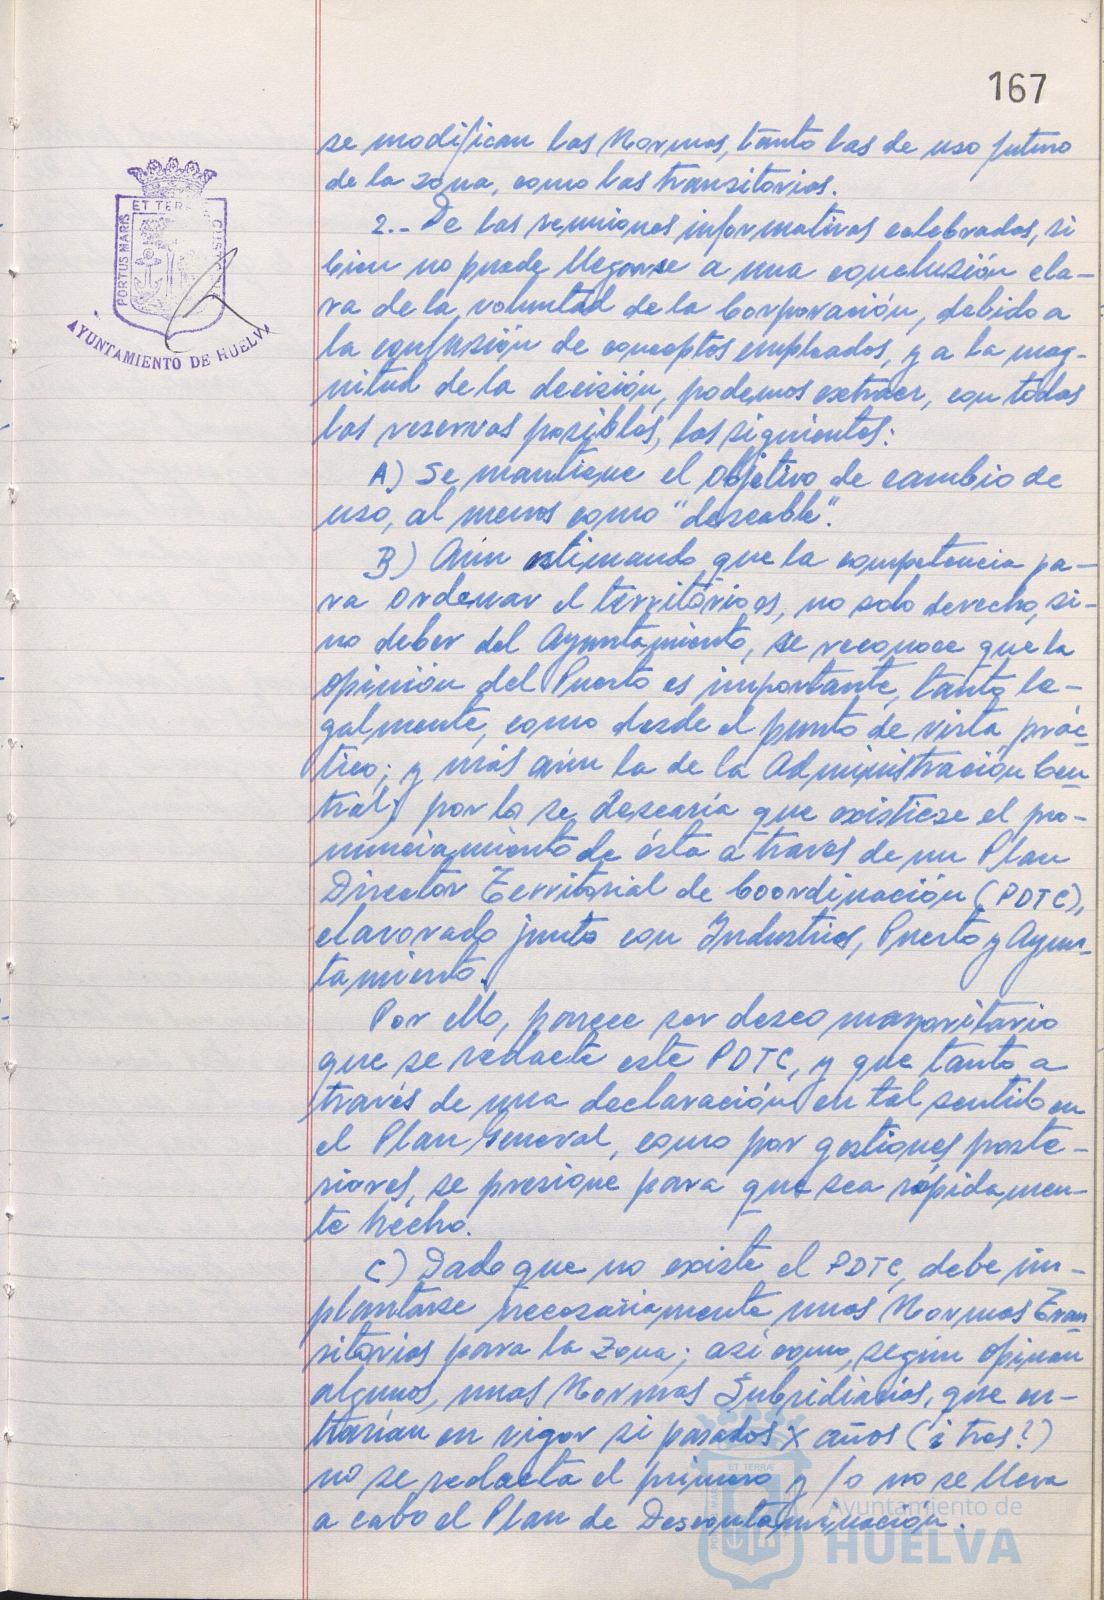 167
se modifican las Normas, tanto las de uso futuro
de la zona, como las transitorias.
2.- De las reuniones informativas celebradas, si
bien no puede llegarse a una conclusión cla-
ra de la voluntad de la Corporación, debido a
la confusión de conceptos empleados, y a la mag-
nitud de la decisión, podemos extraer, con todas
las reservas posibles, las siguientes:
A) Se mantiene el objetivo de cambio de
uso, al menos como "deseable".
B) Aún estimando que la competencia pa-
ra ordenar el territorio es, no solo derecho, si-
no deber del Ayuntamiento, se reconoce que la
opinión del Puerto es importante, tanto le-
galmente, como desde el punto de vista prác-
tico; y más aún la de la Administración Cen
tral; por lo se desearía que existiese el pro-
nunciamiento de ésta a traves de un Plan
Director Territorial de Coordinación (PDTC),
elavorado junto con Industria, Puerto y Ayun-
tamiento.
Por ello, parece ser deseo mayoritario
que se redacte este PDTC, y que tanto a
través de una declaración en tal sentido en
el Plan General, como por gestiones poste-
riores, se presione para que sea rápidamen-
te hecho.
C) Dado que no existe el PDTC, debe im-
plantarse necesariamente unas Normas Tran
sitorias para la Zona; así como, según opinan
algunos, unas Normas Subsidiarias, que en-
trarían en vigor si pasados x años (¿tres?)
no se redacta el primero y/o no se lleva
a cabo el Plan de Descontaminación.
ET TERRA
PORTUS MARIS
CUSTODIA
AYUNTAMIENTO DE HUELVA
ET TERRÆ
Ayuntamiento de
HUELVA